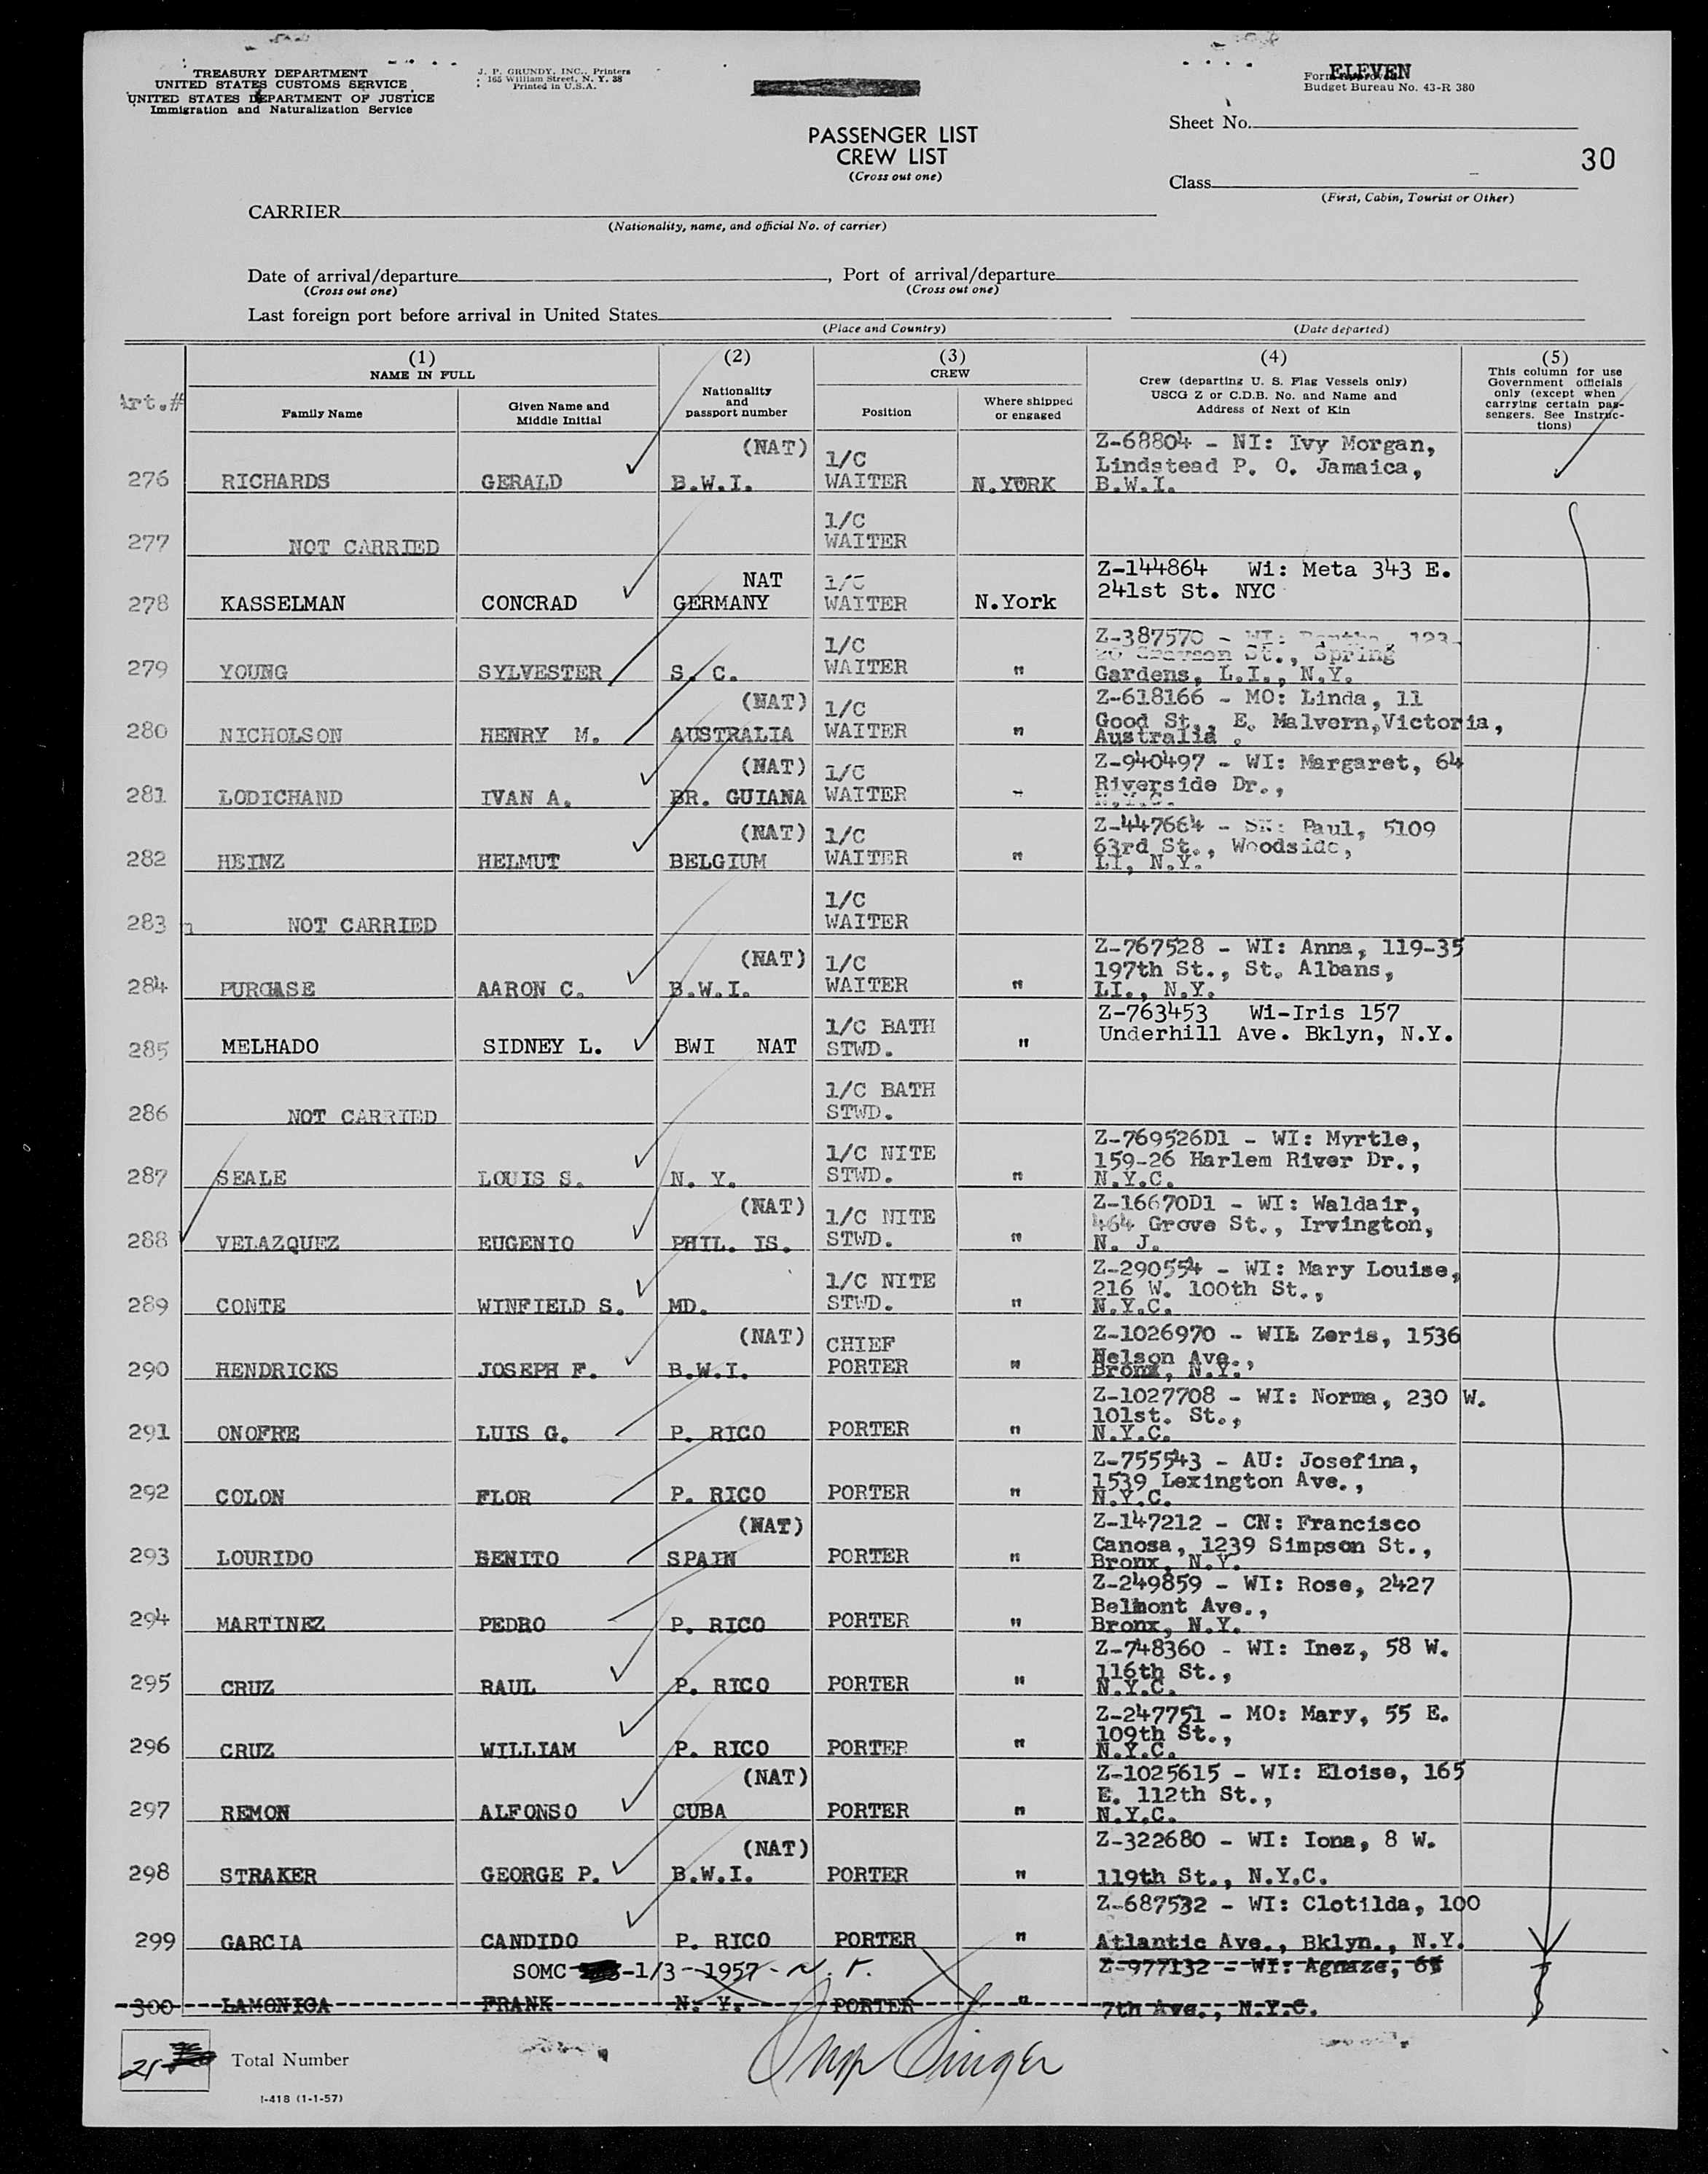 TREASURY DEPARTMENT
UNITED STATES CUSTOMS SERVICE
UNITED STATES DEPARTMENT OF JUSTICE
Immigration and Naturalization Service
J. P. GRUNDY, INC., Printers
165 William Street, N. Y. 38
Printed in U.S.A.
ELEVEN
Form Approved
Budget Bureau No. 43-R 380
PASSENGER LIST
CREW LIST
(Cross out one)
Sheet No.
30
Class
(First, Cabin, Tourist or Other)
CARRIER
(Nationality, name, and official No. of carrier)
Date of arrival/departure , Port of arrival/departure
(Cross out one) (Cross out one)
Last foreign port before arrival in United States
(Place and Country) (Date departed)
Art.#
(1)
NAME IN FULL
Family Name
Given Name and
Middle Initial
(2)
Nationality
and
passport number
(3)
CREW
Position
Where shipped
or engaged
(4)
Crew (departing U. S. Flag Vessels only)
USCG Z or C.D.B. No. and Name and
Address of Next of Kin
(5)
This column for use
Government officials
only (except when
carrying certain pas-
sengers. See Instruc-
tions)
276 RICHARDS GERALD (NAT) B.W.I. 1/C WAITER N.YORK Z-68804 - NI: Ivy Morgan,
Lindstead P. O. Jamaica,
B.W.I.
277 NOT CARRIED 1/C WAITER
278 KASSELMAN CONCRAD NAT GERMANY 1/C WAITER N.York Z-144864 Wi: Meta 343 E.
241st St. NYC
279 YOUNG SYLVESTER S. C. 1/C WAITER " Z-387570 - WI: 123-
St., Spring
Gardens, L.I., N.Y.
280 NICHOLSON HENRY M. (NAT) AUSTRALIA 1/C WAITER " Z-618166 - MO: Linda, 11
Good St., E. Malvern,Victoria,
Australia .
281 LODICHAND IVAN A. (NAT) BR. GUIANA 1/C WAITER " Z-940497 - WI: Margaret, 64
Riverside Dr.,
N.Y.C.
282 HEINZ HELMUT (NAT) BELGIUM 1/C WAITER " Z-447664 - SN: Paul, 5109
63rd St., Woodside,
LI, N.Y.
283 NOT CARRIED 1/C WAITER
284 PURCASE AARON C. (NAT) B.W.I. 1/C WAITER " Z-767528 - WI: Anna, 119-35
197th St., St. Albans,
LI., N.Y.
285 MELHADO SIDNEY L. BWI NAT 1/C BATH STWD. " Z-763453 Wi-Iris 157
Underhill Ave. Bklyn, N.Y.
286 NOT CARRIED 1/C BATH STWD.
287 SEALE LOUIS S. N. Y. 1/C NITE STWD. " Z-769526D1 - WI: Myrtle,
159-26 Harlem River Dr.,
N.Y.C.
288 VELAZQUEZ EUGENIO (NAT) PHIL. IS. 1/C NITE STWD. " Z-16670D1 - WI: Waldair,
464 Grove St., Irvington,
N. J.
289 CONTE WINFIELD S. MD. 1/C NITE STWD. " Z-290554 - WI: Mary Louise,
216 W. 100th St.,
N.Y.C.
290 HENDRICKS JOSEPH F. (NAT) B.W.I. CHIEF PORTER " Z-1026970 - WI: Zeris, 1536
Nelson Ave.,
Bronx, N.Y.
291 ONOFRE LUIS G. P. RICO PORTER " Z-1027708 - WI: Norma, 230 W.
101st. St.,
N.Y.C.
292 COLON FLOR P. RICO PORTER " Z-755543 - AU: Josefina,
1539 Lexington Ave.,
N.Y.C.
293 LOURIDO BENITO (NAT) SPAIN PORTER " Z-147212 - CN: Francisco
Canosa, 1239 Simpson St.,
Bronx, N.Y.
294 MARTINEZ PEDRO P. RICO PORTER " Z-249859 - WI: Rose, 2427
Belmont Ave.,
Bronx, N.Y.
295 CRUZ RAUL P. RICO PORTER " Z-748360 - WI: Inez, 58 W.
116th St.,
N.Y.C.
296 CRUZ WILLIAM P. RICO PORTER " Z-247751 - MO: Mary, 55 E.
109th St.,
N.Y.C.
297 REMON ALFONSO (NAT) CUBA PORTER " Z-1025615 - WI: Eloise, 165
E. 112th St.,
N.Y.C.
298 STRAKER GEORGE P. (NAT) B.W.I. PORTER " Z-322680 - WI: Iona, 8 W.
119th St., N.Y.C.
299 GARCIA CANDIDO P. RICO PORTER " Z-687532 - WI: Clotilda, 100
Atlantic Ave., Bklyn., N.Y.
SOMC -1/3 -1957- N.Y.
300 LAMONICA FRANK N. Y. PORTER " Z-977132 - WI: Agnaze, 65
7th Ave., N.Y.C.
21 Total Number
I-418 (1-1-57)